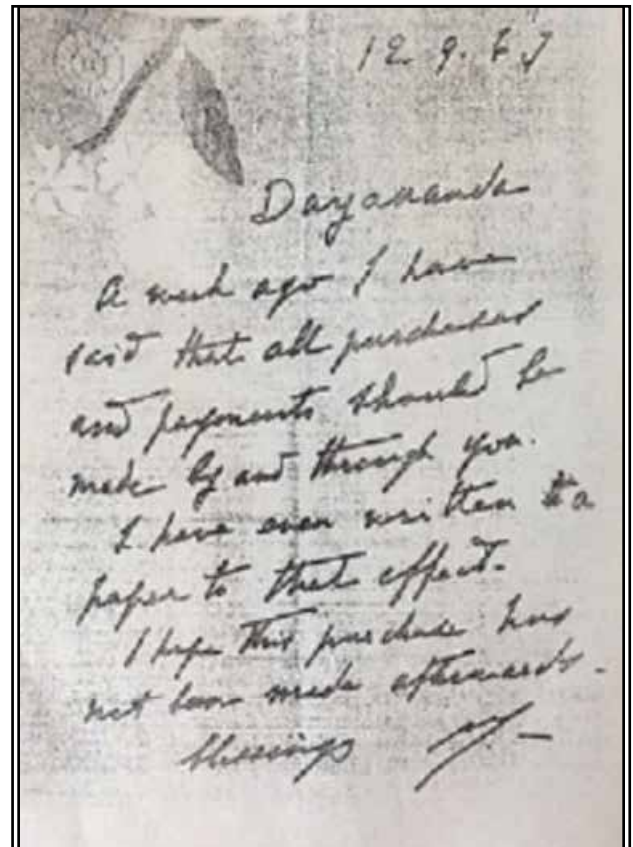 12.9.67
Dayananda
A week ago I have
said that all purchases
and payments should be
made by and through you.
I have even written a
paper to that effect.
I hope this purchase has
not been made afterwards.
blessings